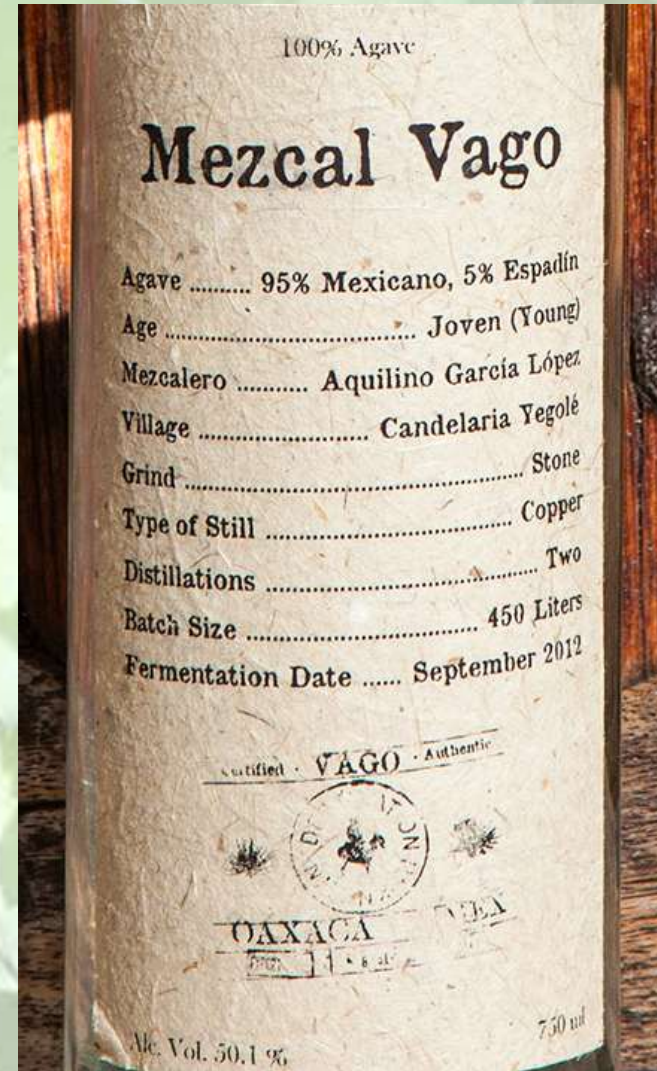 100% Agave
Mezcal Vago
Agave .......... 95% Mexicano, 5% Espadín
Age .......................................... Joven (Young)
Mezcalero .......... Aquilino García López
Village ............................ Candelaria Yegolé
Grind ......................................................... Stone
Type of Still ......................................... Copper
Distillations ............................................. Two
Batch Size ...................................... 450 Liters
Fermentation Date ...... September 2012
Certified · VAGO · Authentic
OAXACA
Alc. Vol. 50.1 %
750 ml